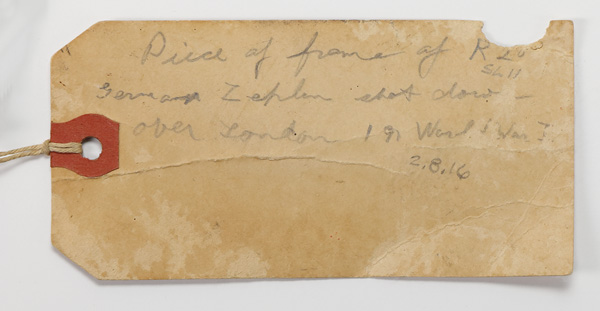 Piece of frame of R
SL11
German Zeplin shot down -
over London 1st World War I
2.8.16